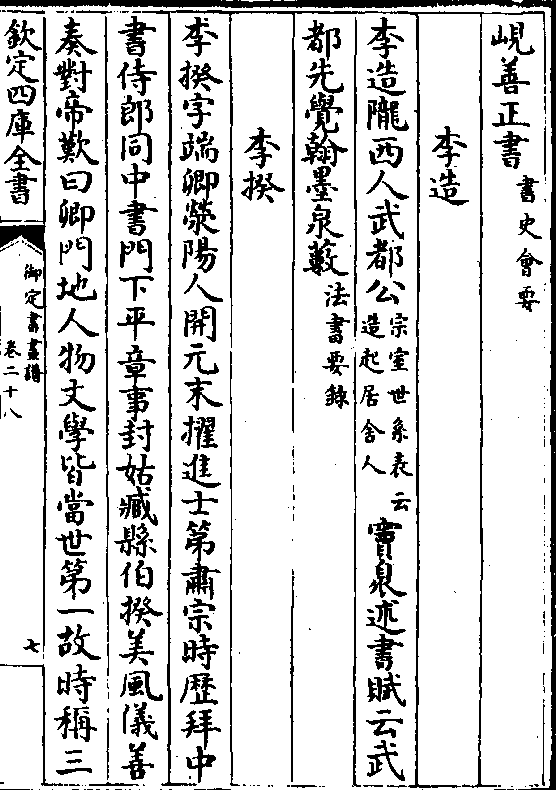 峴善正書 書史會要
李造
李造隴西人武都公 宗室世系表云造起居舍人 竇泉述書賦云武
都先覺翰墨泉藪 法書要錄
李揆
李揆字端卿滎陽人開元末擢進士第肅宗時歷拜中
書侍郎同中書門下平章事封姑臧縣伯揆美風儀善
奏對帝歎曰卿門地人物文學皆當世第一故時稱三
欽定四庫全書
御定書畫譜
卷二十八
七